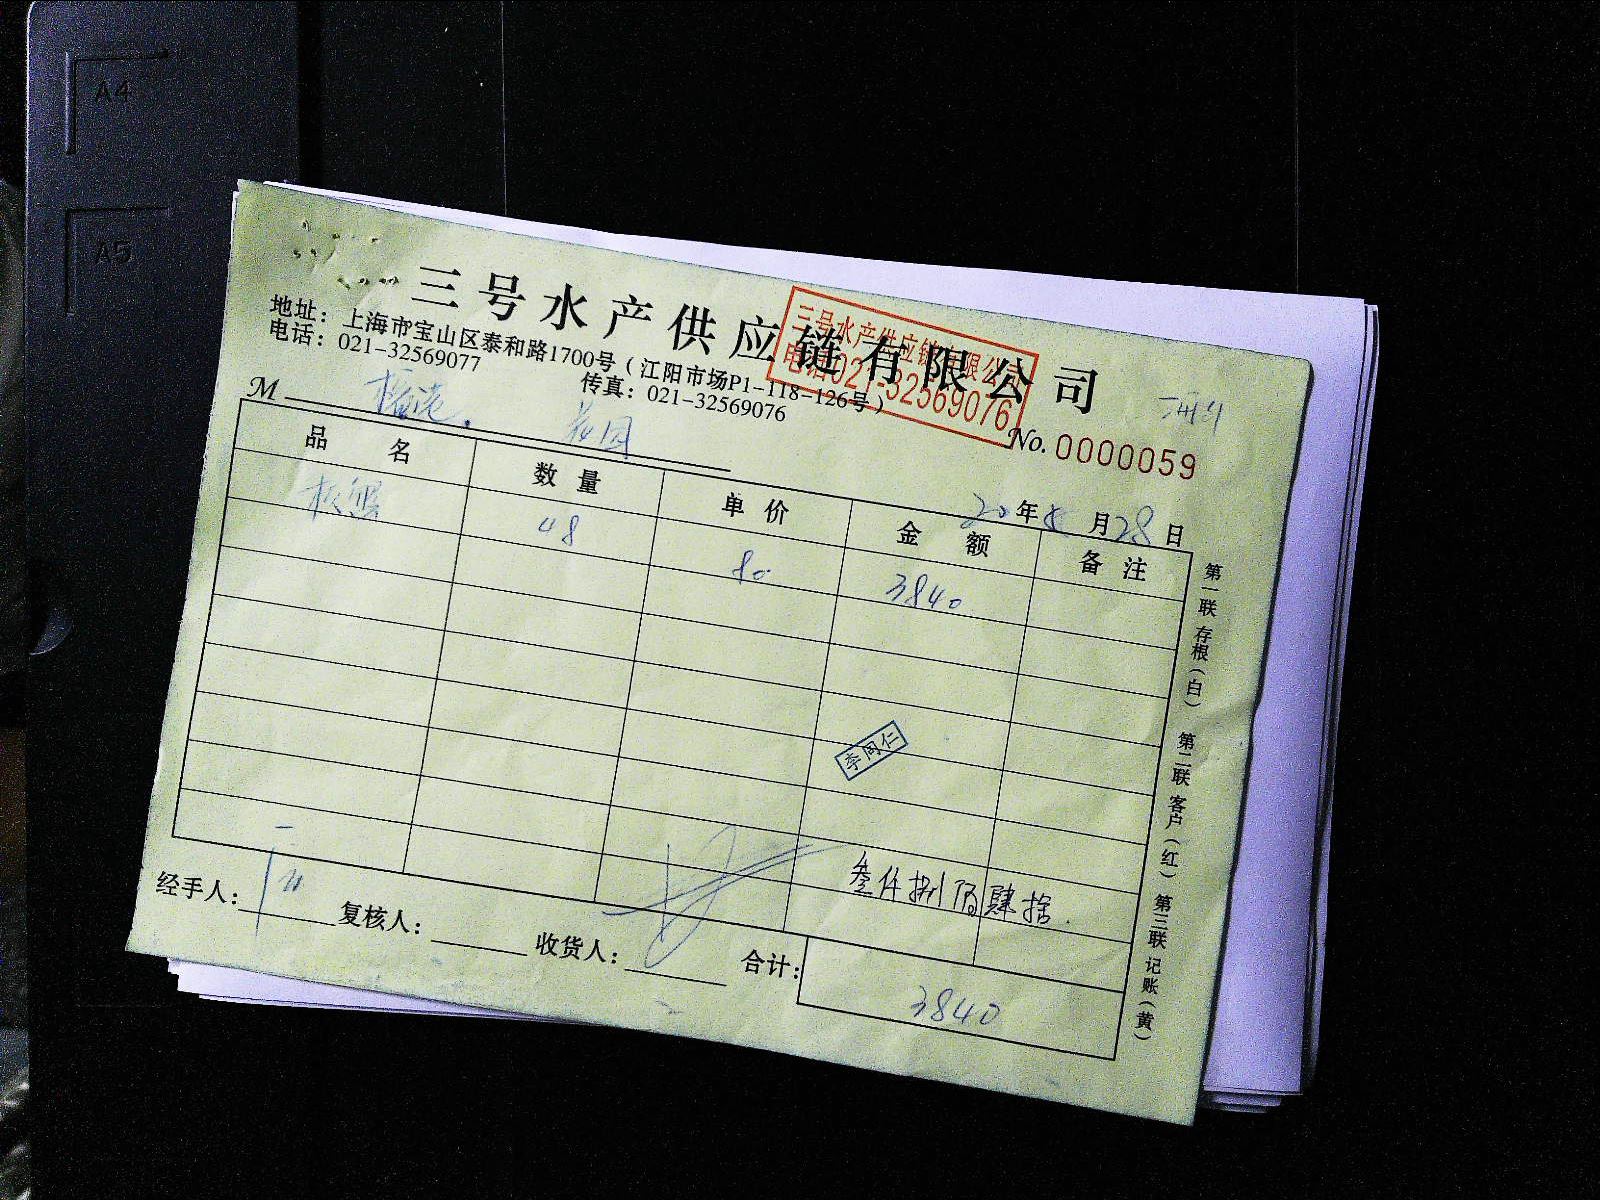 A4
A5
三号水产供应链有限公司
三号水产供应链有限公司
电话021-32569076
地址：上海市宝山区泰和路1700号（江阳市场P1-118-126号）
电话：021-32569077 传真：021-32569076
M 花园
No. 0000059
20年 月28日
品名 数量 单价 金额 备注
48 80 3840
李周仁
叁仟捌佰肆拾
经手人： 复核人： 收货人： 合计：3840
第一联 存根（白） 第二联 客户（红） 第三联 记账（黄）